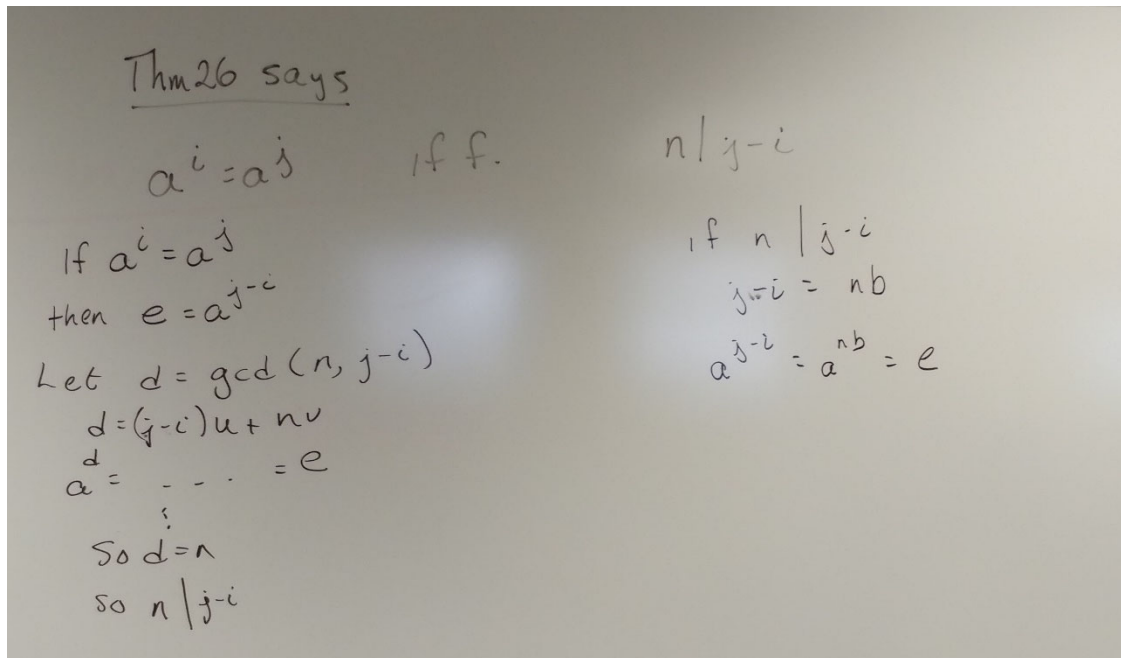 Thm 26 says
a^i = a^j iff. n | j-i
If a^i = a^j
then e = a^{j-i}
Let d = gcd(n, j-i)
d = (j-i)u + nv
a^d = - - - . = e
⋮
So d = n
so n | j-i
if n | j-i
j-i = nb
a^{j-i} = a^{nb} = e